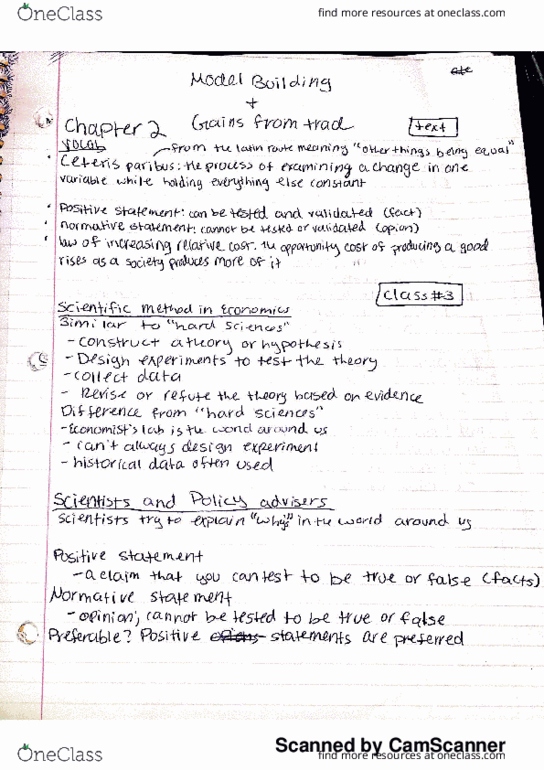 OneClass
find more resources at oneclass.com
Model Building
+
Chapter 2 Gains from trad
text
vocab
from the latin route meaning "other things being equal"
Ceteris paribus: the process of examining a change in one
variable while holding everything else constant
Positive statement: can be tested and validated (fact)
normative statement: cannot be tested or validated (opion)
law of increasing relative cost: the opportunity cost of producing a good
rises as a society produces more of it
class #3
Scientific method in Economics
Similar to "hard sciences"
- construct a theory or hypothesis
- Design experiments to test the theory
- collect data
- Revise or refute the theory based on evidence
Difference from "hard sciences"
- Economist's lab is the world around us
- can't always design experiment
- historical data often used
Scientists and Policy advisers
Scientists try to explain "whys" in the world around us
Positive statement
- a claim that you can test to be true or false (facts)
Normative statement
- opinion; cannot be tested to be true or false
Preferable? Positive statements are preferred
Scanned by CamScanner
OneClass
find more resources at oneclass.com